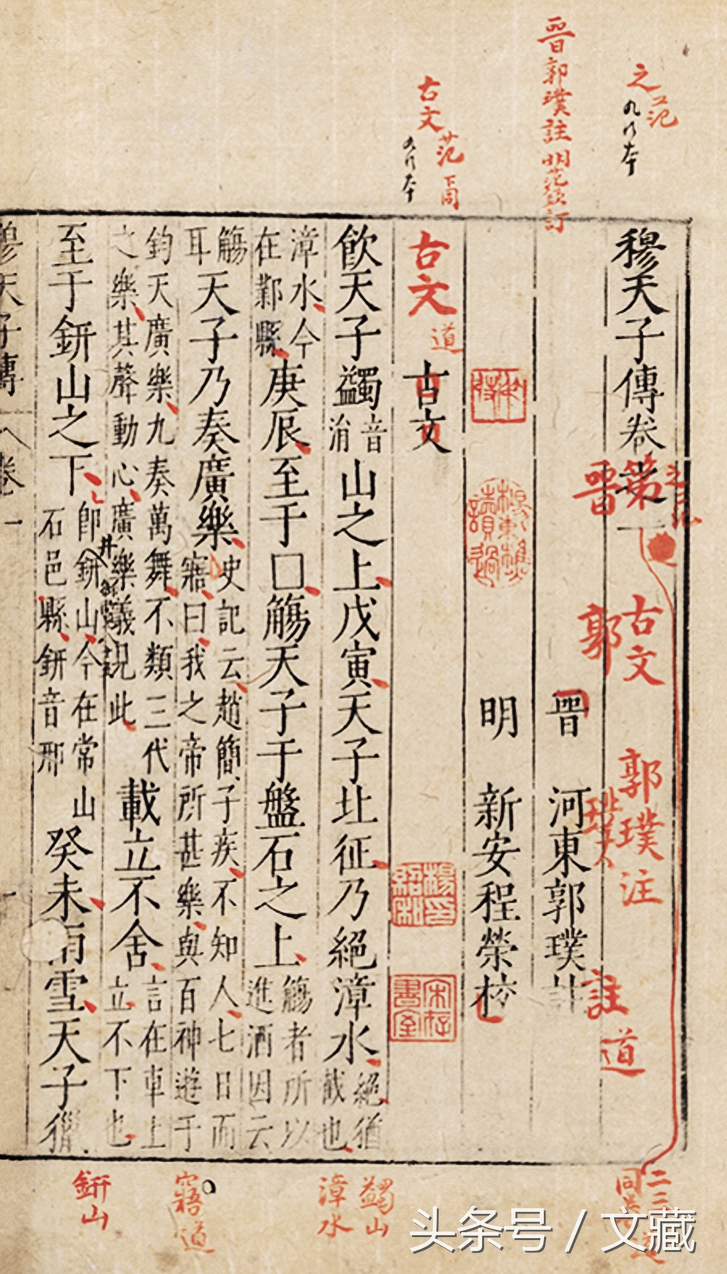 穆天子傳卷第一
晉 河東郭璞註
明 新安程榮校
古文
飲天子蠲音涓山之上戊寅天子北征乃絕漳水絕猶截也
漳水今在鄴縣庚辰至于□觴天子于盤石之上觴者所以進酒因云
觴耳天子乃奏廣樂史記云趙簡子疾不知人七日而寤曰我之帝所甚樂與百神遊于
鈞天廣樂九奏萬舞不類三代之樂其聲動心廣樂義見此載立不舍言在車上立不下也
至于鈃山之下即鈃山今在常山石邑縣鈃音邢癸未雨雪天子獵
穆天子傳 卷一
之范
九行本
晉郭璞註明范欽訂
古文范下同
九行本
古文道
晉郭璞註道
古文
郭璞注
蠲山
漳水
寤道
鈃山
头条号 / 文藏